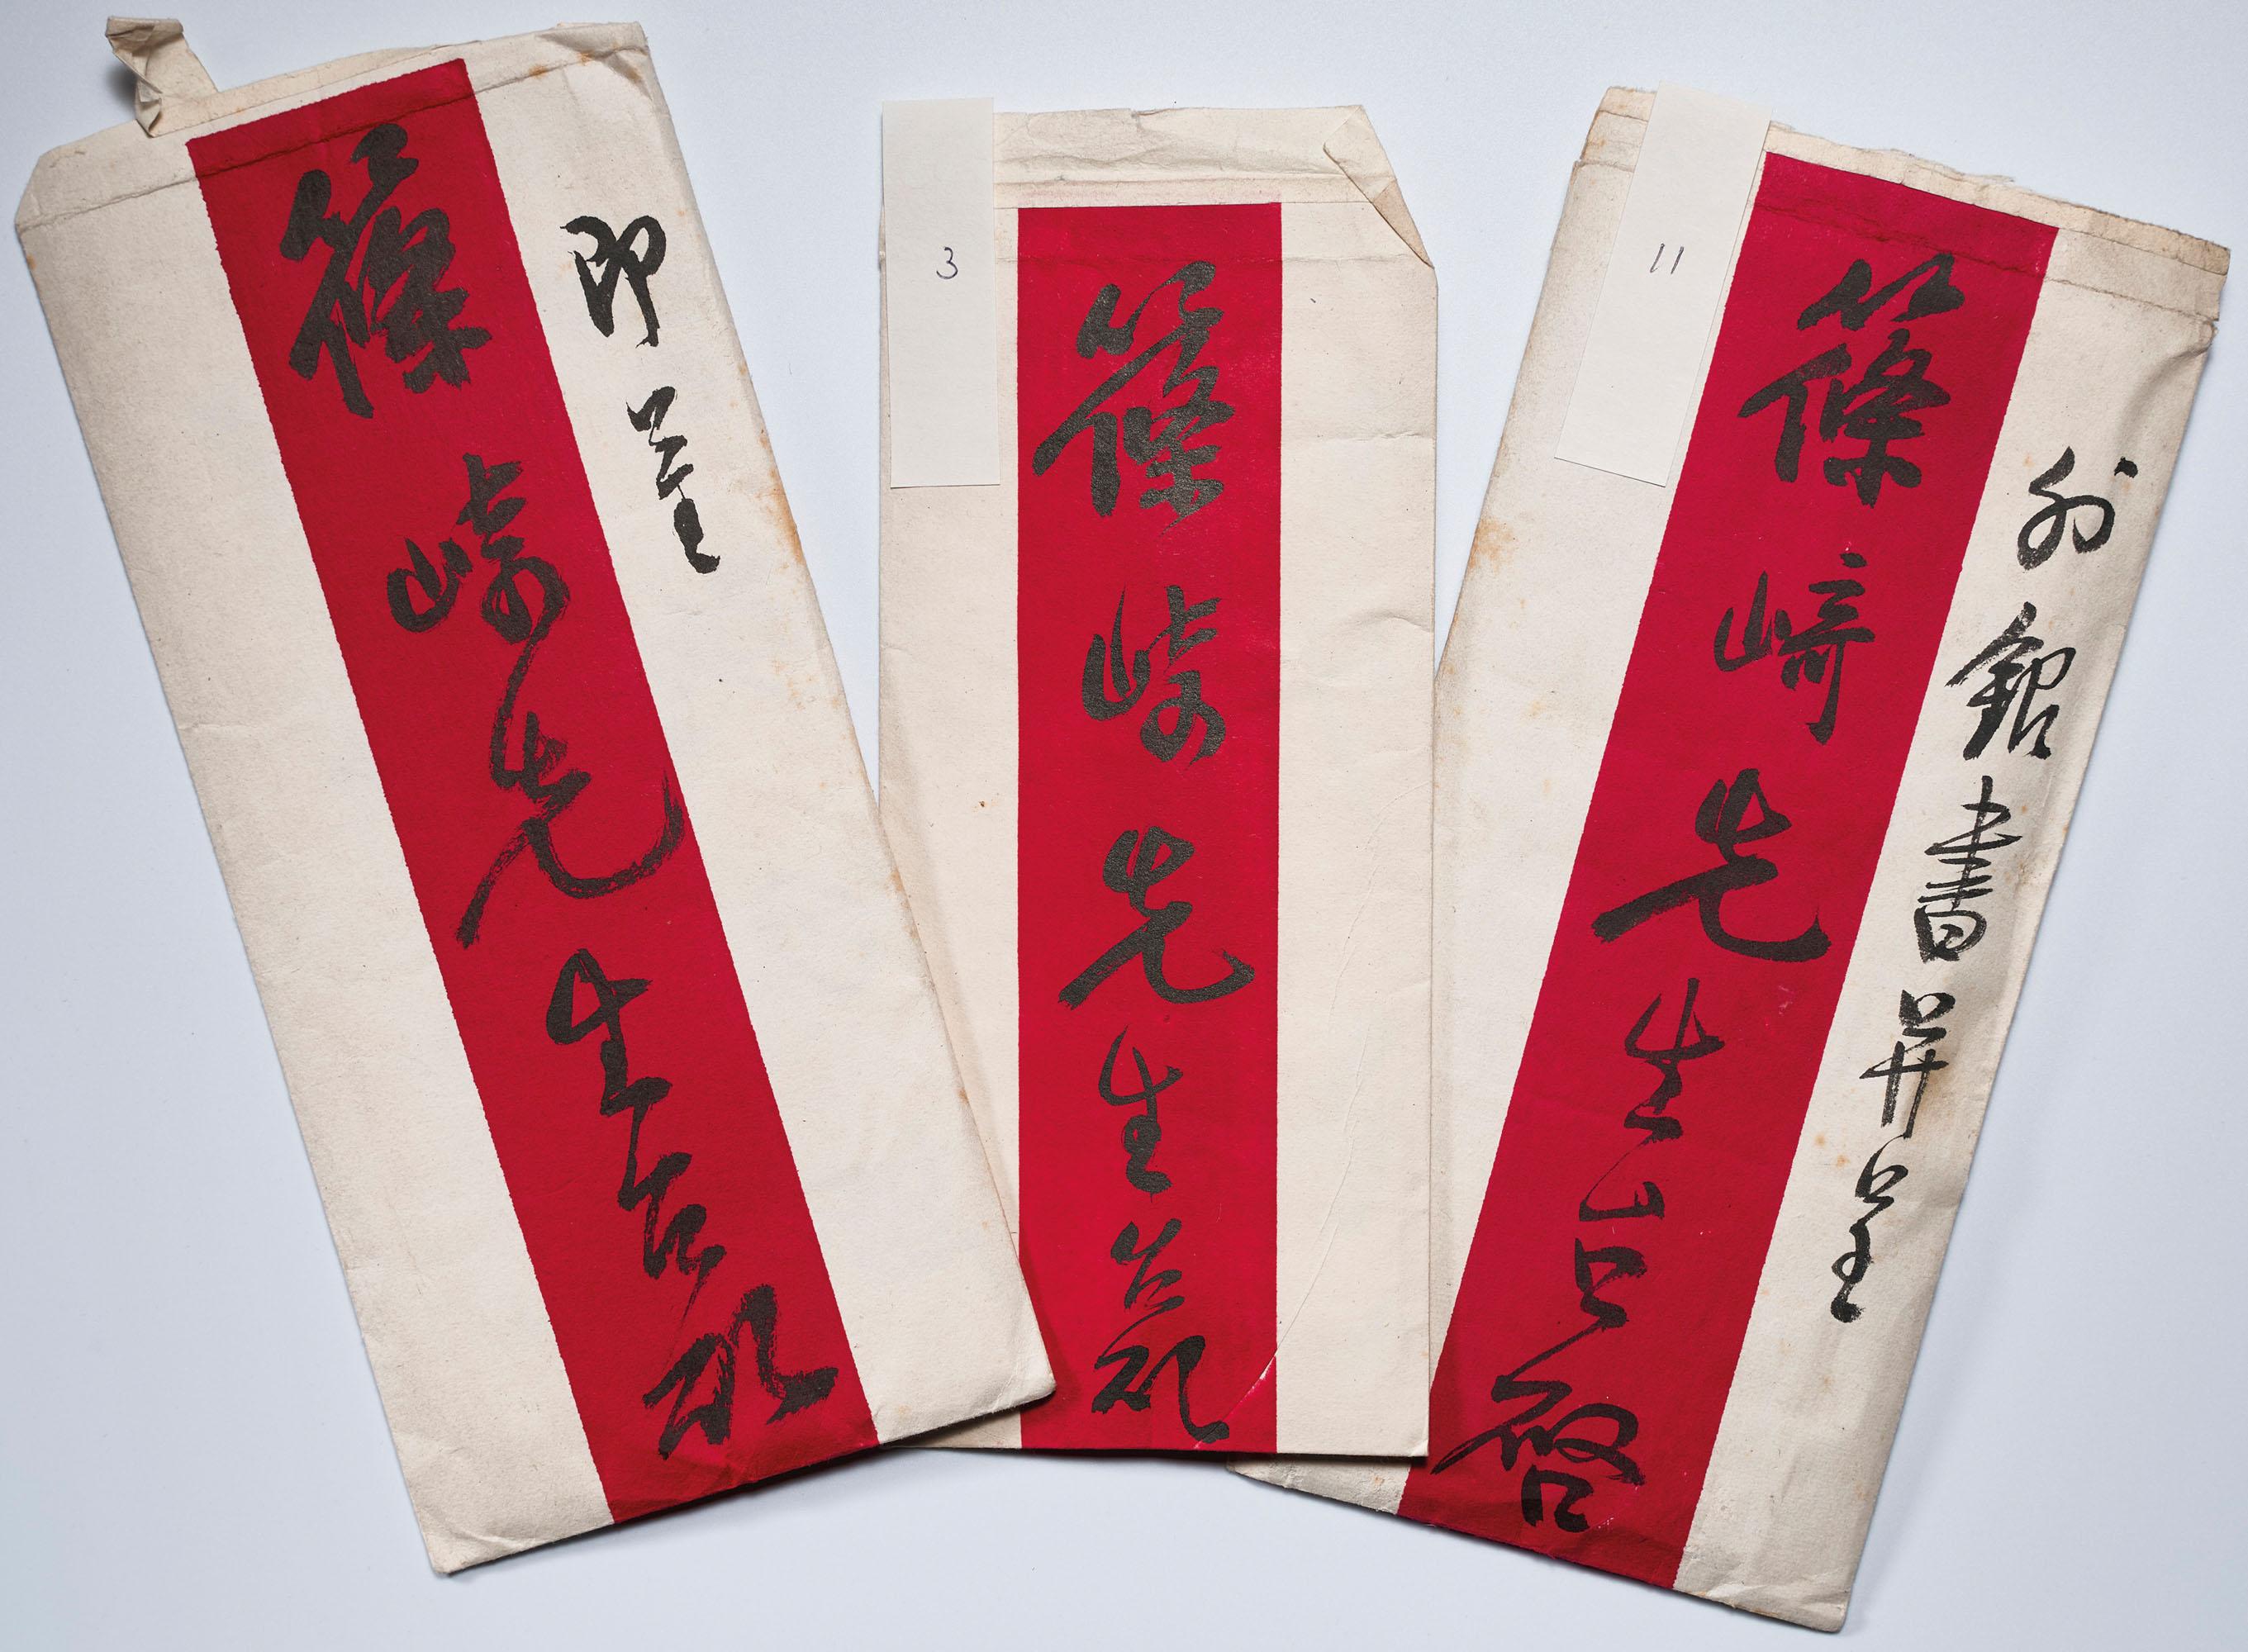 即呈
篠崎先生台啟
3
篠崎先生台啟
11
外銘書并呈
篠崎先生台啓